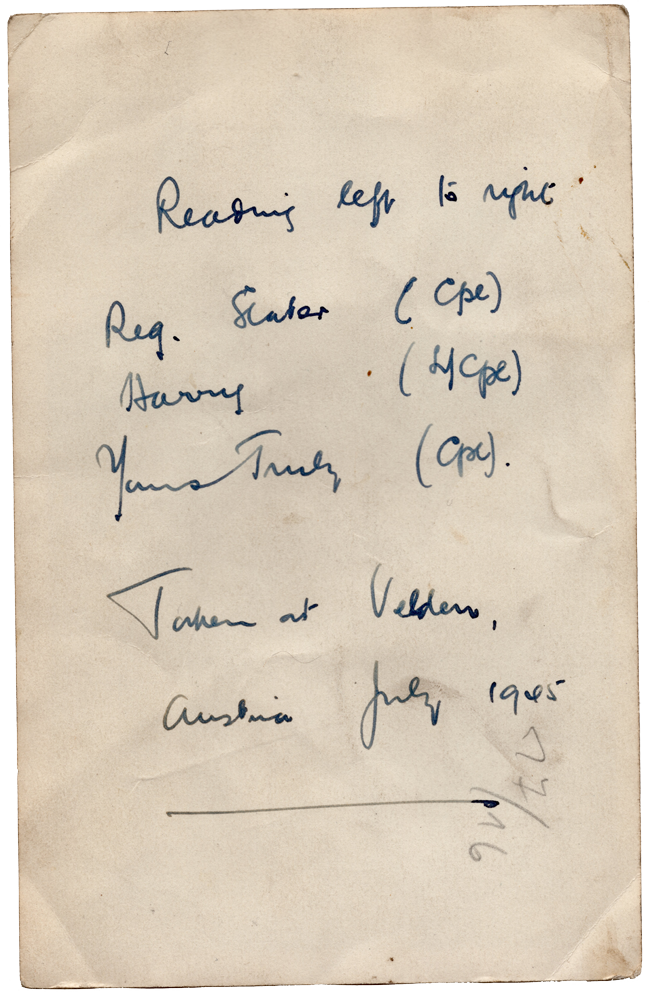 Reading left to right
Reg. Slater (Cpl)
Harry (L/Cpl)
Yours Truly (Cpl).
Taken at Velden,
Austria July 1945